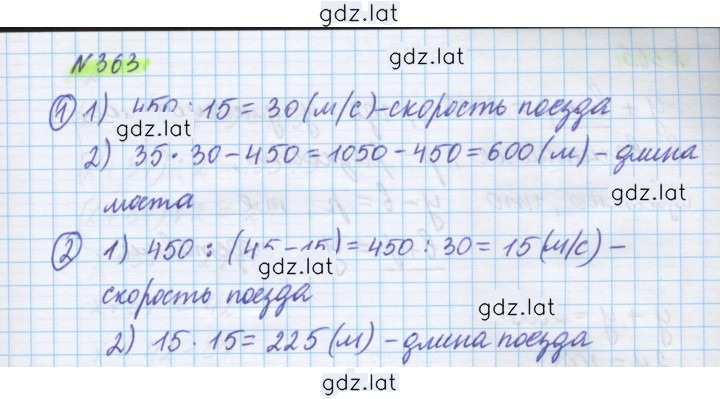 gdz.lat
№363
gdz.lat
① 1) 450 : 15 = 30 (м/с) – скорость поезда
gdz.lat
2) 35 · 30 – 450 = 1050 – 450 = 600 (м) – длина
gdz.lat
моста
② 1) 450 : (45 – 15) = 450 : 30 = 15 (м/с) –
gdz.lat
скорость поезда
gdz.lat
2) 15 · 15 = 225 (м) – длина поезда
gdz.lat